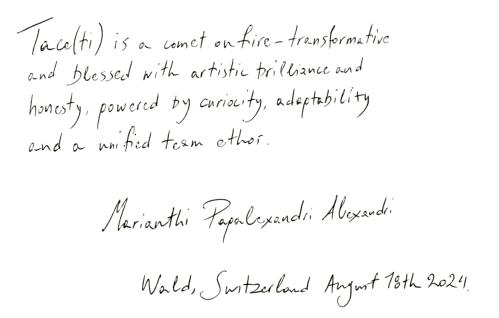 Tace(ti) is a comet on fire - transformative
and blessed with artistic brilliance and
honesty, powered by curiocity, adaptability
and a unified team ethos.
Marianthi Papalexandri Alexandri
Wald, Switzerland August 18th 2024.